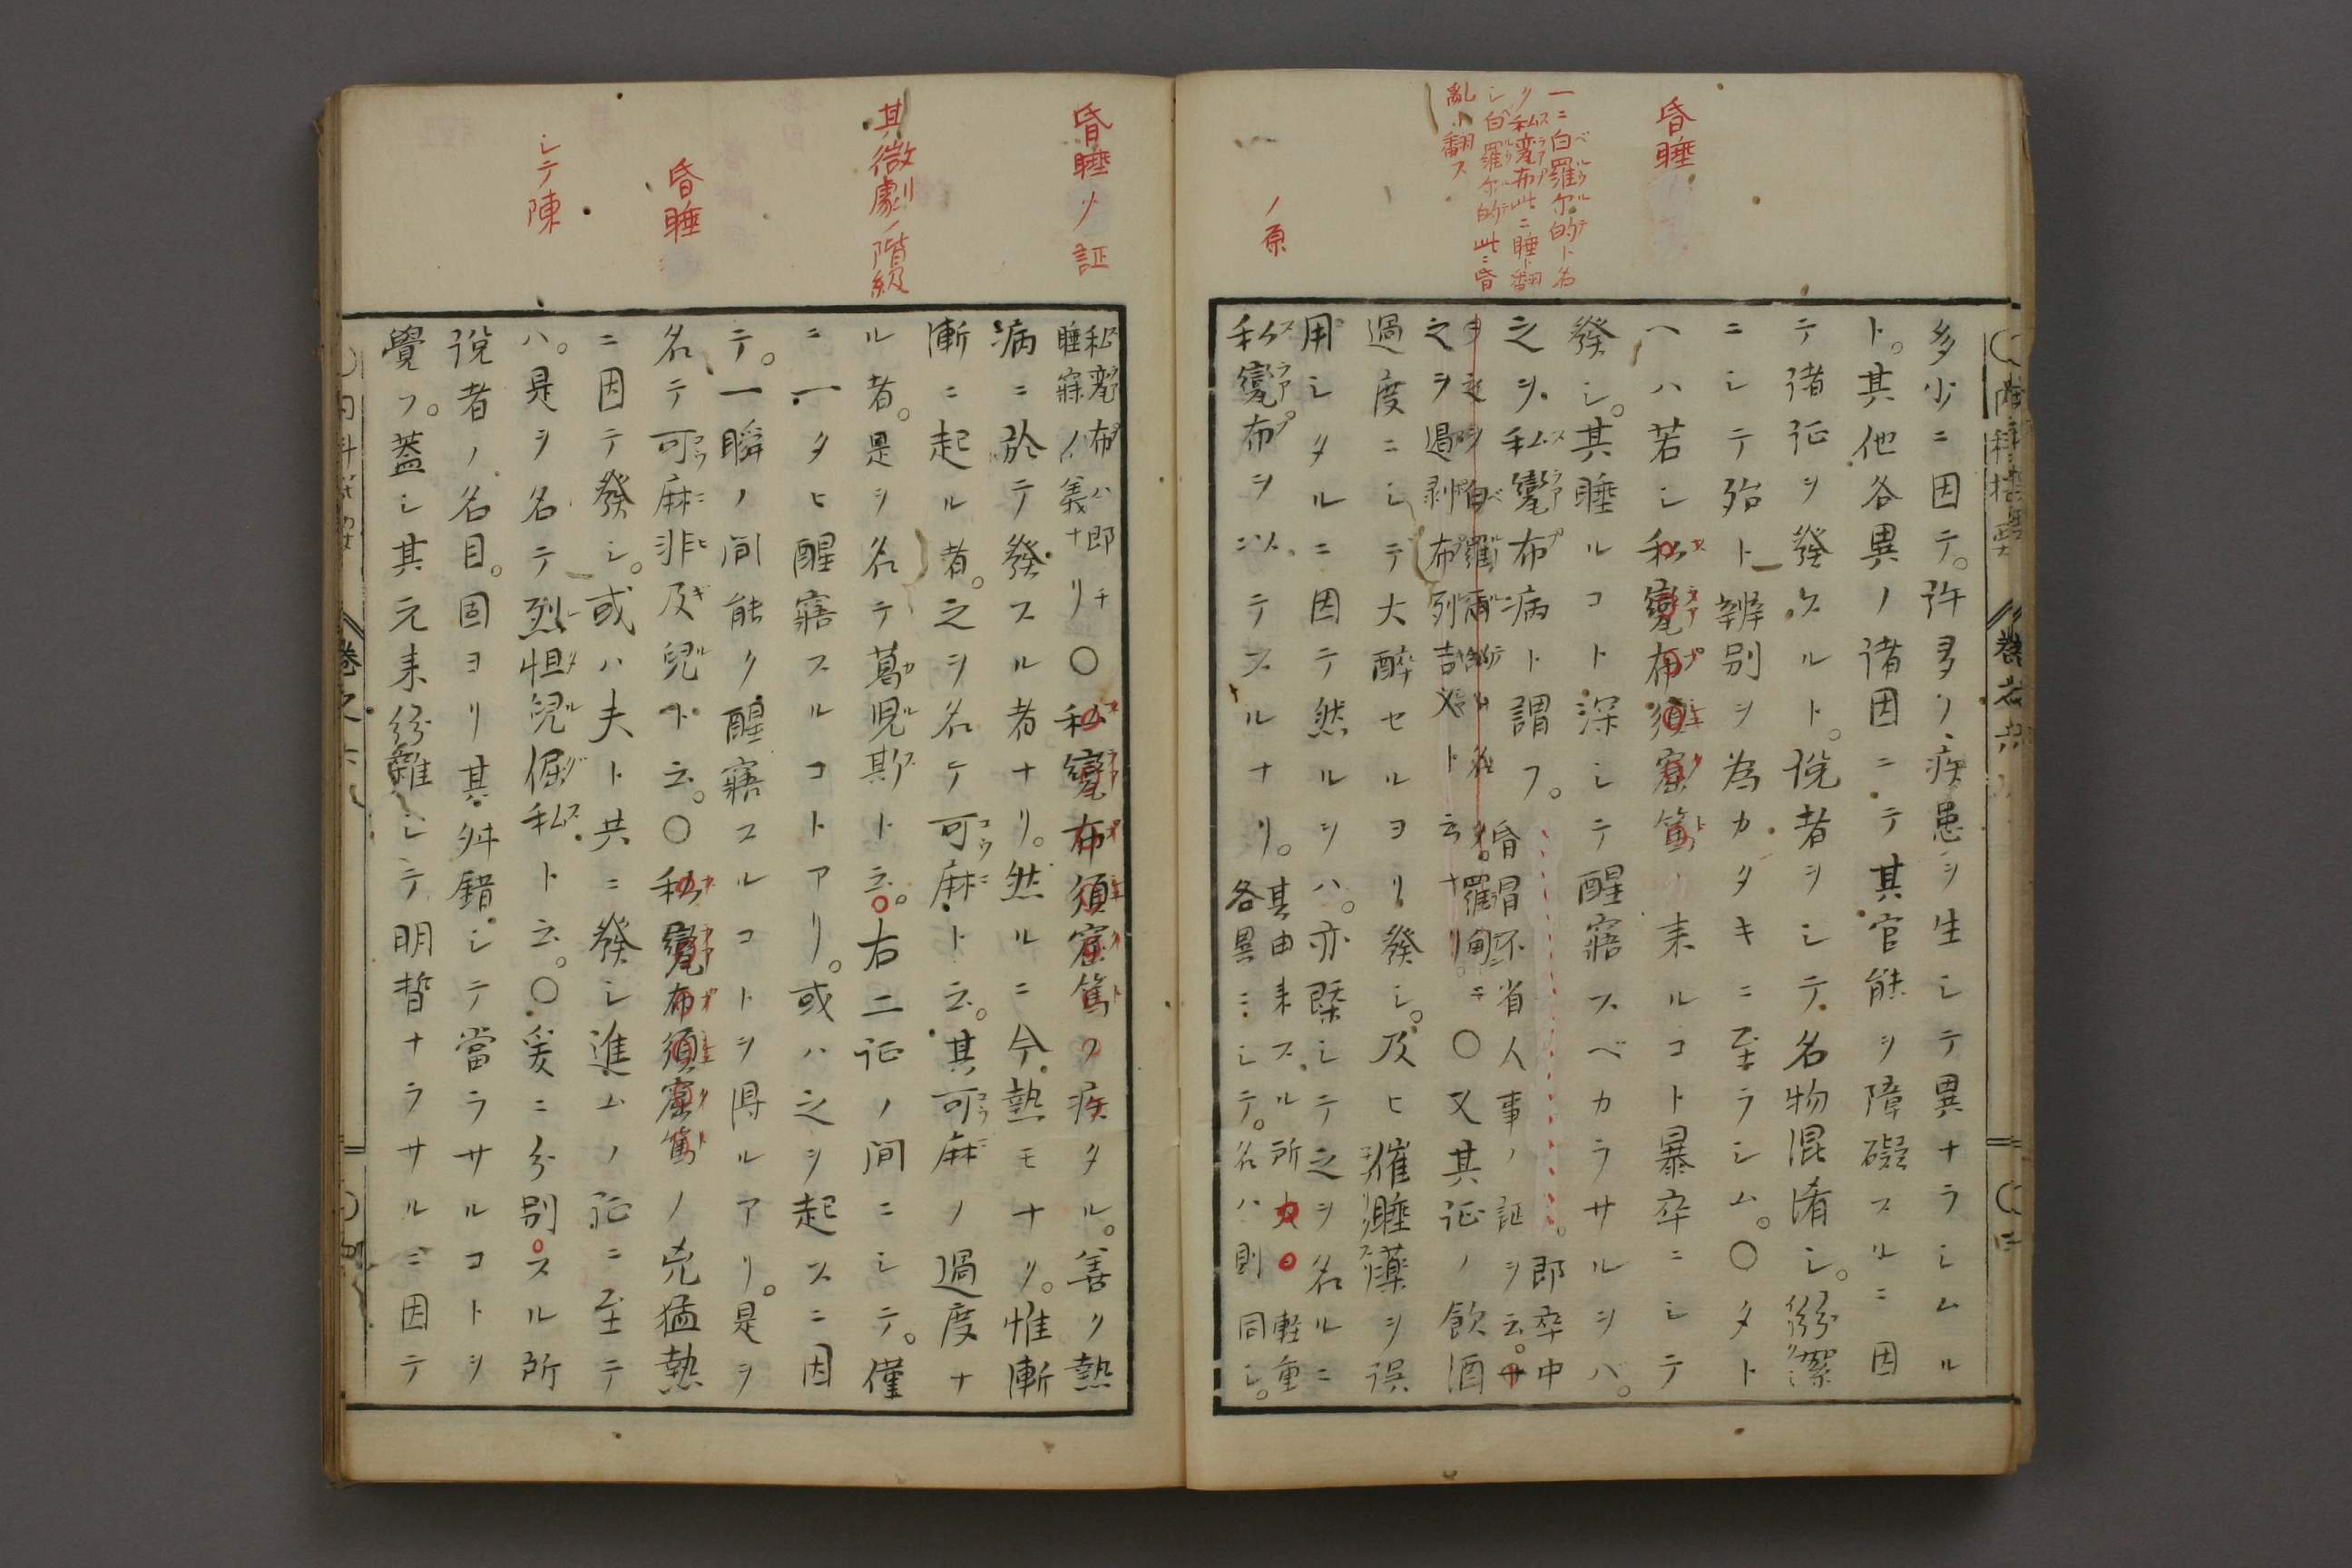 昏睡
一ニ白羅尓的ト名
ク私変布此ニ睡ト翻
シ白羅尓的此ニ昏
亂ト翻ス
ノ原
多少ニ因テ。許多ノ疾患ヲ生シテ異ナラシムル
ト。其他各異ノ諸因ニテ其官能ヲ障礙スルニ因
テ諸証ヲ發スルト。説者ヲシテ名物混淆シ。紛絮
ニシテ殆ト辨別ヲ為カタキニ至ラシム。〇タト
ヘハ若シ私孌布須窟篤ノ来ルコト暴卒ニシテ
發シ。其睡ルコト深シテ醒寤スベカラサルヲバ。
之ヲ私孌布病ト謂フ。即卒中
昏冒不省人事ノ証ヲ云。
之ヲ過剥布列吉
ト云
〇又其証ノ飲酒
過度ニシテ大醉セルヨリ發シ。及ヒ催睡藥ヲ誤
用シタルニ因テ然ルヲハ。亦槩シテ之ヲ名ルニ
私孌布ヲ以テスルナリ。其由来スル所
軽重
各異ニシテ。名ハ則同シ。
昏睡ノ証
其微劇ノ階級
昏睡
シテ陳
私孌布ハ即チ
睡寐ノ義ナリ
〇私孌布須窟篤ノ疾タル。善ク熱
病ニ於テ發スル者ナリ。然ルニ今熱モナク。惟漸
漸ニ起ル者。之ヲ名ケ可麻ト云。其可麻ノ過度ナ
ル者。是ヲ名テ葛児斯ト云。右二証ノ間ニシテ。僅
ニ一タヒ醒寤スルコトアリ。或ハ之ヲ起スニ因
テ。一瞬ノ間能ク醒寤スルコトヲ得ルアリ。是ヲ
名テ可麻非及兒ト云。〇私孌布須窟篤ノ兇猛熱
ニ因テ發シ。或ハ夫ト共ニ發シ進ムノ証ニ至テ
ハ。是ヲ名テ烈怛兒倔私ト云。〇爰ニ分別スル所
説者ノ名目。固ヨリ其舛錯シテ當ラサルコトヲ
覺フ。蓋シ其元来紛雜シテ明晢ナラサルニ因テ